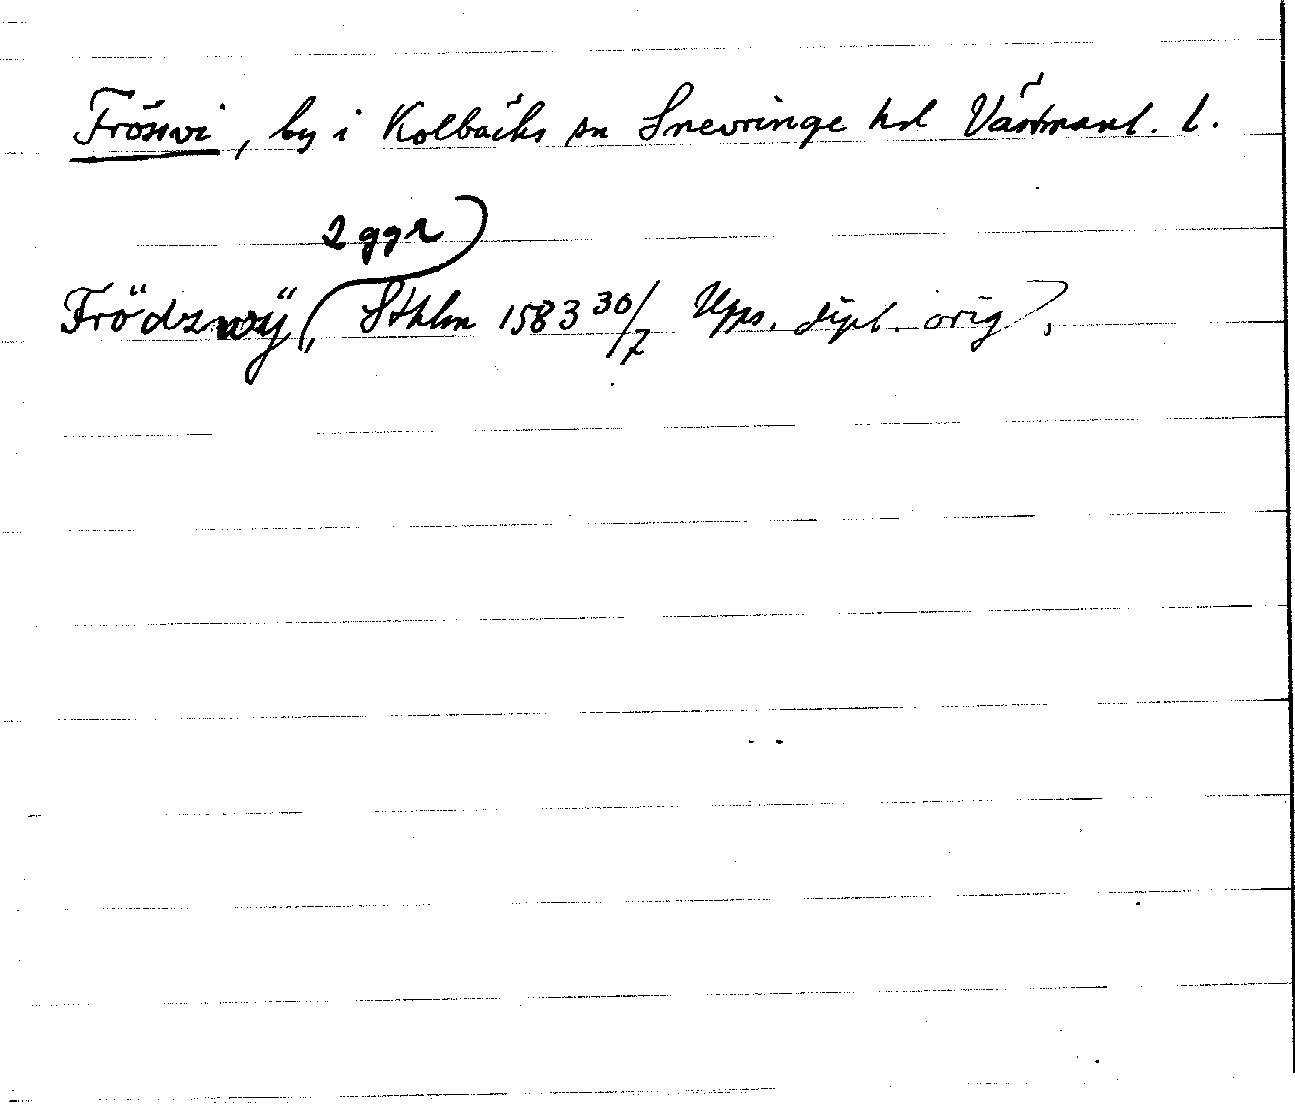 Frösvi, by i Kolbäcks sn Snevringe hd Västmanl. l.
2 ggr
Frödzwÿ (Sthlm 1583 30/7 Ups. dipl. orig),